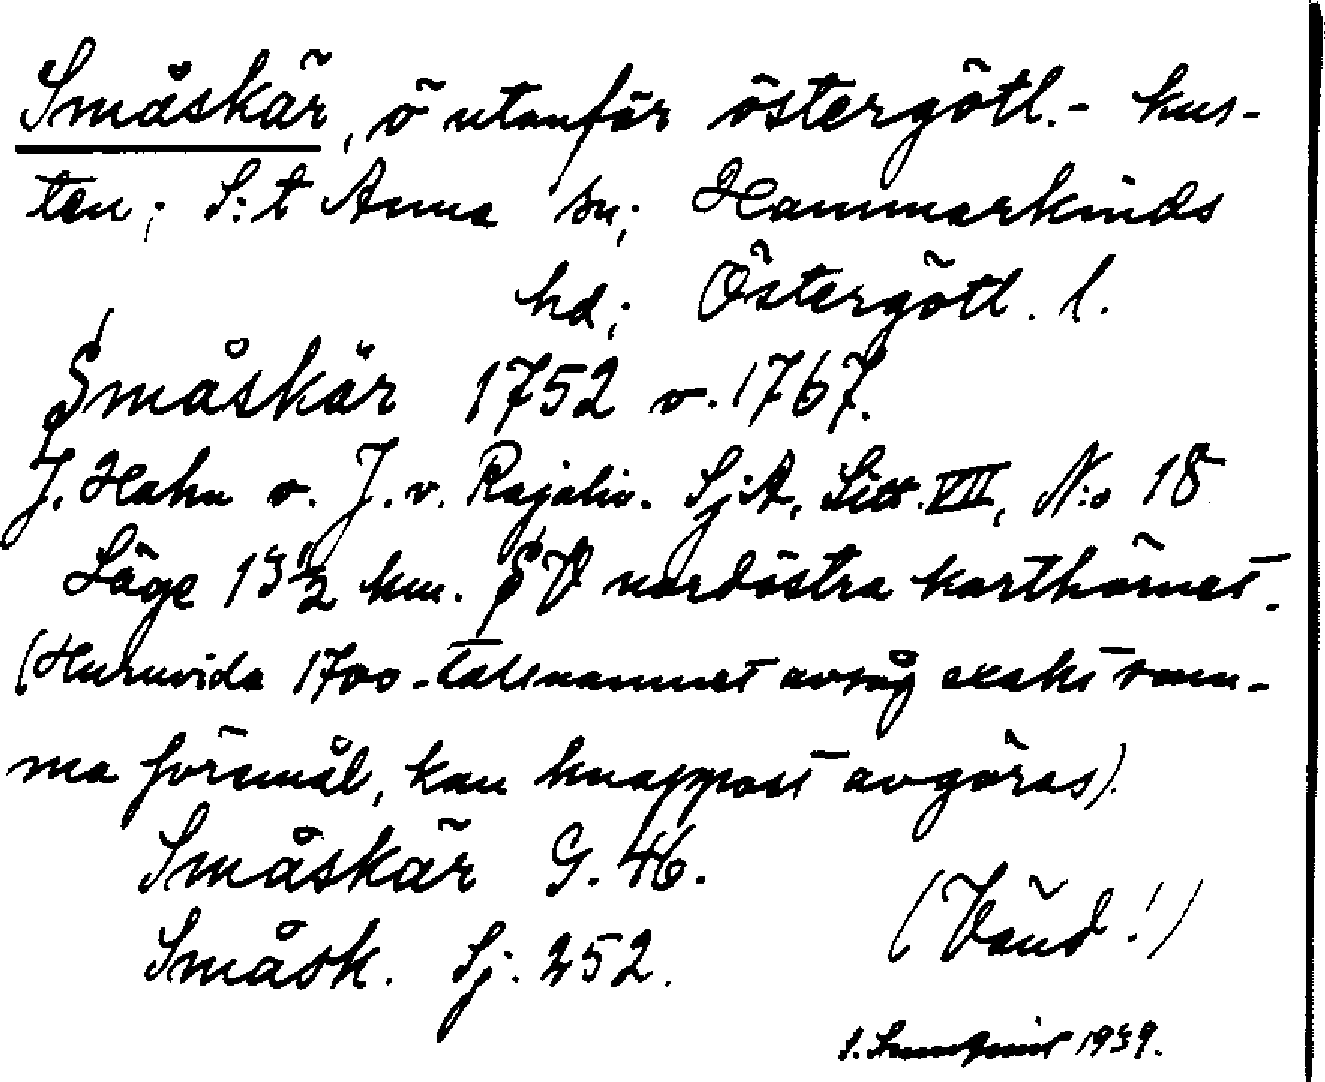 Småskär, ö utanför östergötl.- kus-
ten; S:t Anna sn; Hammarkinds
hd; Östergötl. l.
Småskär 1752 o. 1767.
J. Hahn o. J. v. Rajalin. SjA, Litt. VII, N:o 18
Läge 13½ km. SV nordöstra karthörnet.
(Huruvida 1700-talsnamnet avsåg exakt sam-
ma föremål, kan knappast avgöras).
Småskär G. 46.
Småsk. Sj. 252.
(Vänd!)
1939.